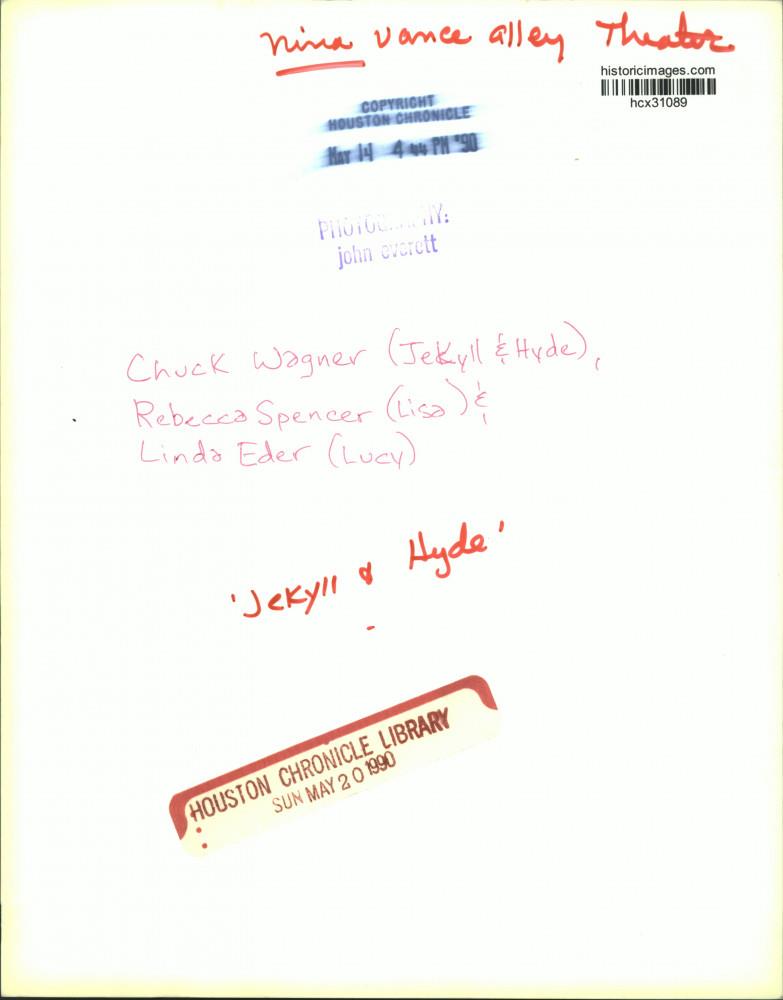 Nina Vance alley Theater
historicimages.com
hcx31089
COPYRIGHT
HOUSTON CHRONICLE
MAY 14 4 44 PM '90
john everett
Chuck Wagner (Jekyll & Hyde),
Rebecca Spencer (Lisa) &
Linda Eder (Lucy)
'Jekyll & Hyde'
HOUSTON CHRONICLE LIBRARY
SUN MAY 20 1990